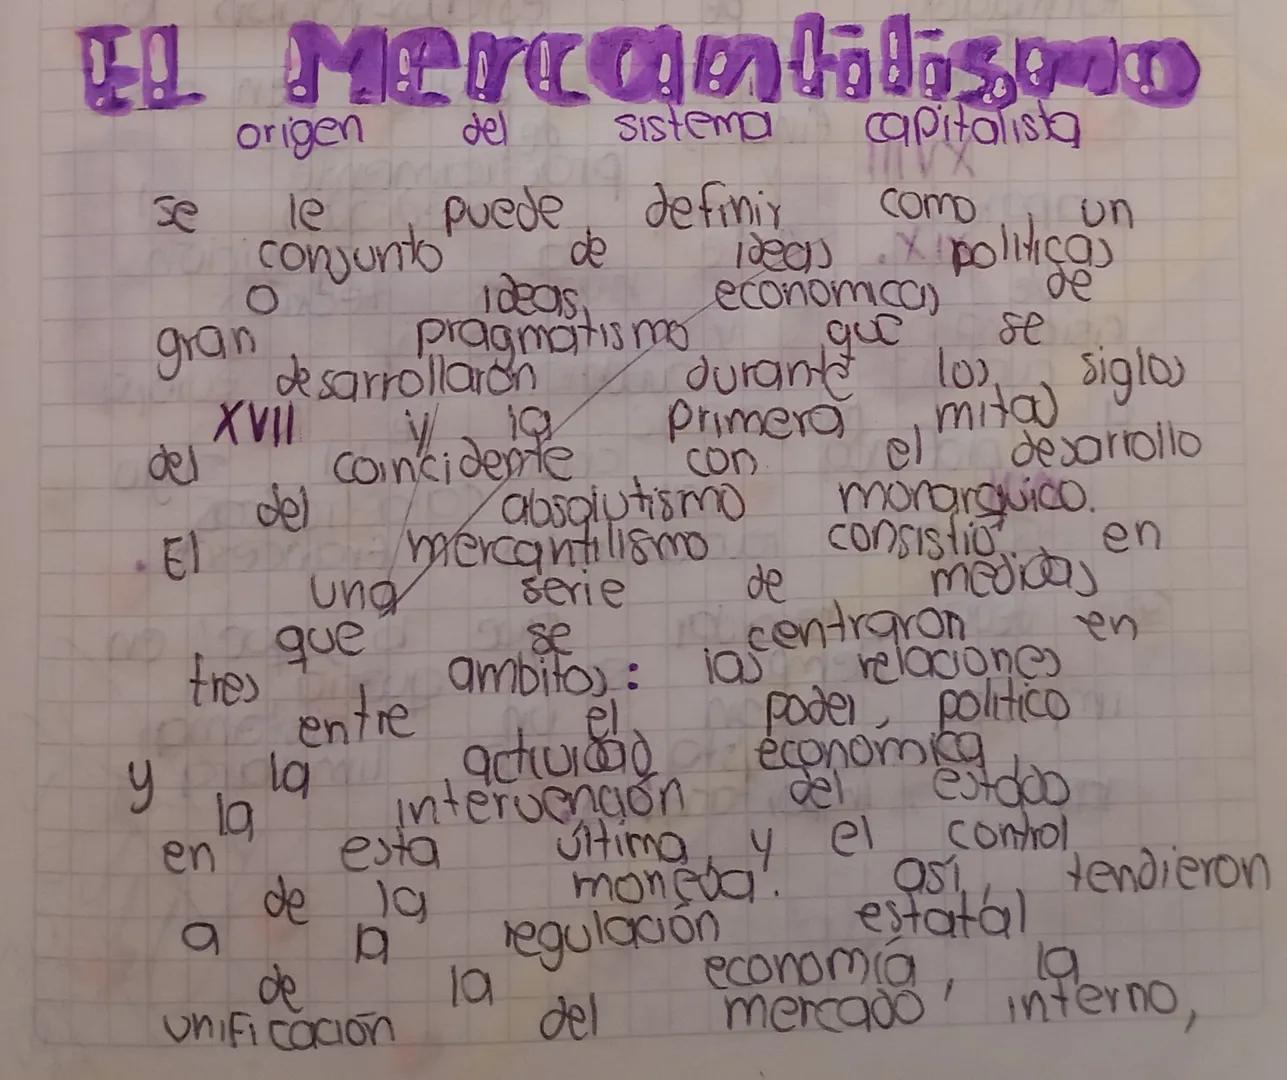 EL Mercantilismo
origen del sistema capitalista
se le puede definir como un
conjunto de ideas politicas
o ideas economicas de
gran pragmatismo que se
desarrollaron durante los siglos
XVII y la primera mitad
del coincidente con el desarrollo
del absolutismo monarquico.
. El mercantilismo consistio en
una serie de medidas
que se centraron en
tres ambitos: las relaciones
entre el poder politico
y la actividad económica
la intervención del estado
en esta última y el control
de la moneda. asi, tendieron
a la regulación estatal
de la economía, la
unificación del mercado interno,